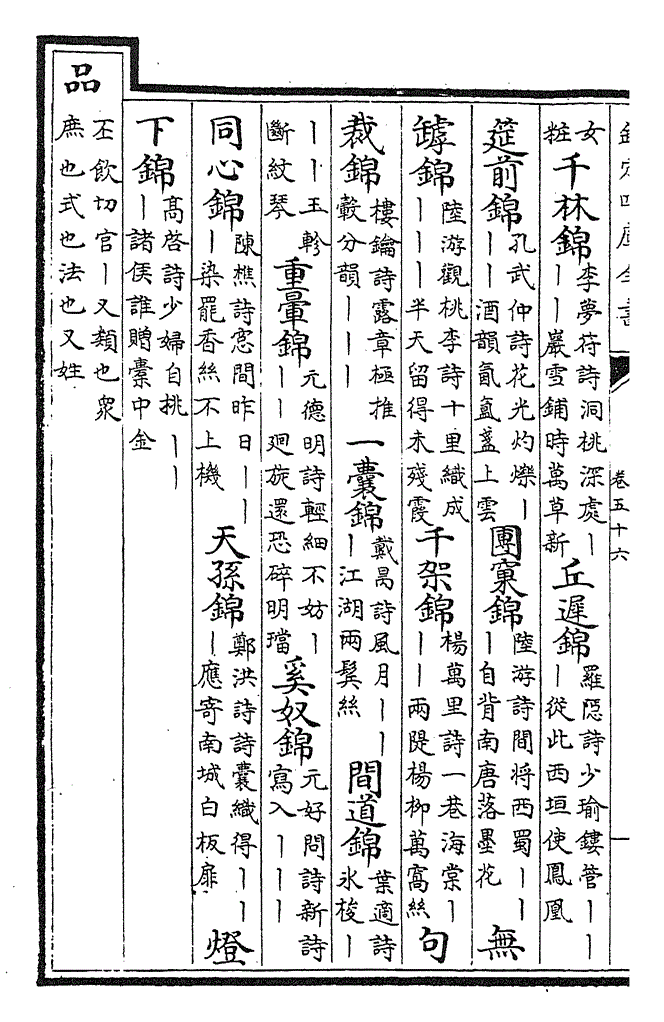 欽定四庫全書 卷五十六 一
女粧千林錦李夢符詩洞桃深處｜｜｜巖雪鋪時萬草新丘遲錦羅隱詩少瑜鏤管｜｜｜從此西垣使鳳凰
筵前錦孔武仲詩花光灼爍｜｜｜酒韻氤氳盞上雲團窠錦陸游詩間將西蜀｜｜｜自背南唐落墨花無
罅錦陸游觀桃李詩十里織成｜｜｜｜半天留得未殘霞千架錦楊萬里詩一巷海棠｜｜｜兩隄楊柳萬窩絲句
裁錦樓鑰詩露章極推轂分韻｜｜｜一囊錦戴昺詩風月｜｜｜江湖兩鬂絲間道錦葉適詩氷梭｜
｜｜玉軫斷紋琴重暈錦元德明詩輕細不妨｜｜｜廻旋還恐碎明璫奚奴錦元好問詩新詩寫入｜｜｜
同心錦陳樵詩窓間昨日｜｜｜染罷香絲不上機天孫錦鄭洪詩詩囊織得｜｜｜應寄南城白板扉燈
下錦高啓詩少婦自挑｜｜｜諸侯誰贈橐中金
品丕飲切官｜又類也衆庶也式也法也又姓